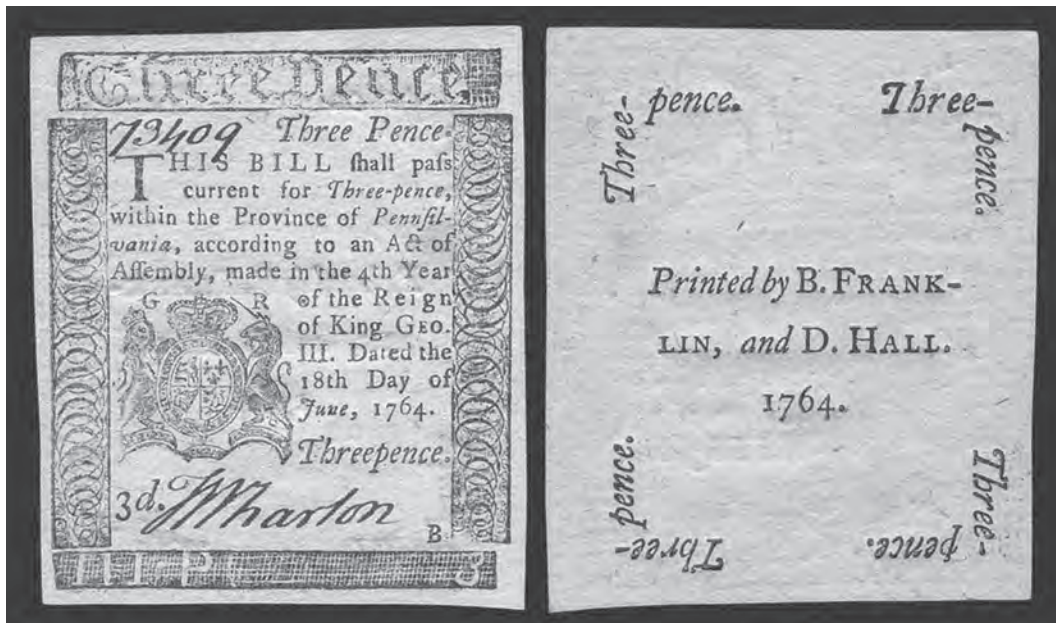 Three Pence.
73409 Three Pence.
THIS BILL ſhall paſs
current for Three-pence,
within the Province of Pennſil-
vania, according to an Act of
Aſſembly, made in the 4th Year
G R of the Reign
of King GEO.
III. Dated the
18th Day of
June, 1764.
Threepence.
3d. Wharton
B
III P 3
Three-pence. Three-pence.
Printed by B. FRANK-
LIN, and D. HALL.
1764.
Three-pence. Three-pence.